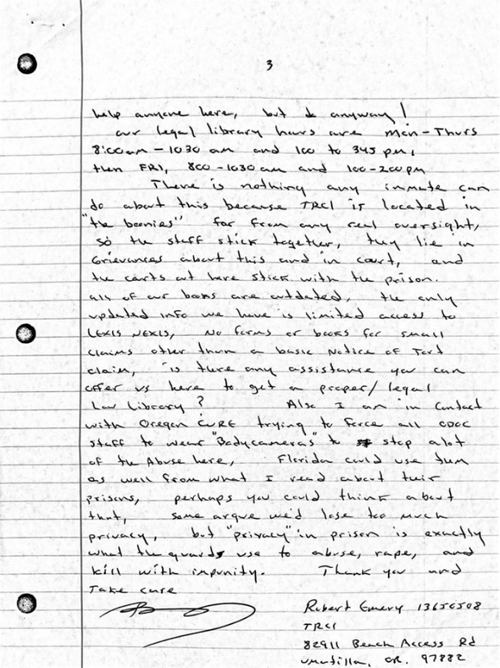 3
help anyone here, but do anyway!
our legal library hours are Mon-Thurs
8:00am - 1030 am and 100 to 345 pm,
then FRI, 800-1030am and 100-200pm
There is nothing any inmate can
do about this because TRCI is located in
"the bonnies" far from any real oversight,
so the staff stick together, they lie in
Grievances about this and in court, and
the courts out here stick with the prison.
all of our books are outdated, the only
updated info we have is limited access to
LEXIS NEXIS, No forms or books for small
claims other than a basic Notice of Tort
claim, is there any assistance you can
offer us here to get a proper/legal
Law Library? Also I am in contact
with Oregon CURE trying to force all ODOC
staff to wear "Bodycameras" to stop alot
of the Abuse here, Florida could use them
as well from what I read about their
prisons, perhaps you could think about
that, some argue we'd lose too much
privacy, but "privacy" in prison is exactly
what the guards use to abuse, rape, and
kill with impunity. Thank you and
Take care
Robert Emery 13656508
TRCI
82911 Beach Access Rd
Umatilla, OR. 97882